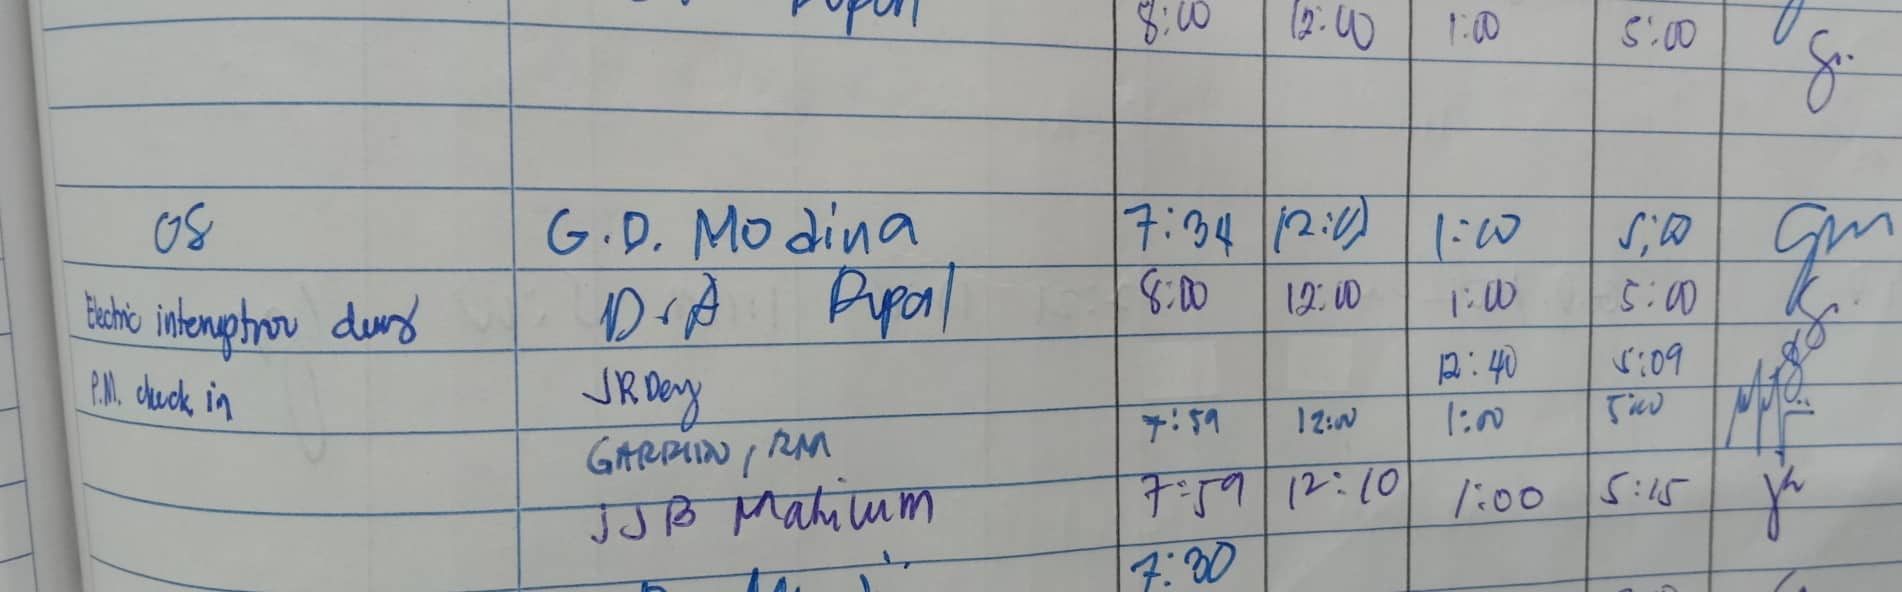 8:00 12:00 1:00 5:00
08 G.D. Modina 7:34 12:00 1:00 5:00 Gm
Electric interruption D.A Pupal 8:00 12:00 1:00 5:00
P.M. check in JRDey 12:40 5:09
7:59 12:00 1:00 5:00
JJB Mahilum 7:59 12:10 1:00 5:15
7:30